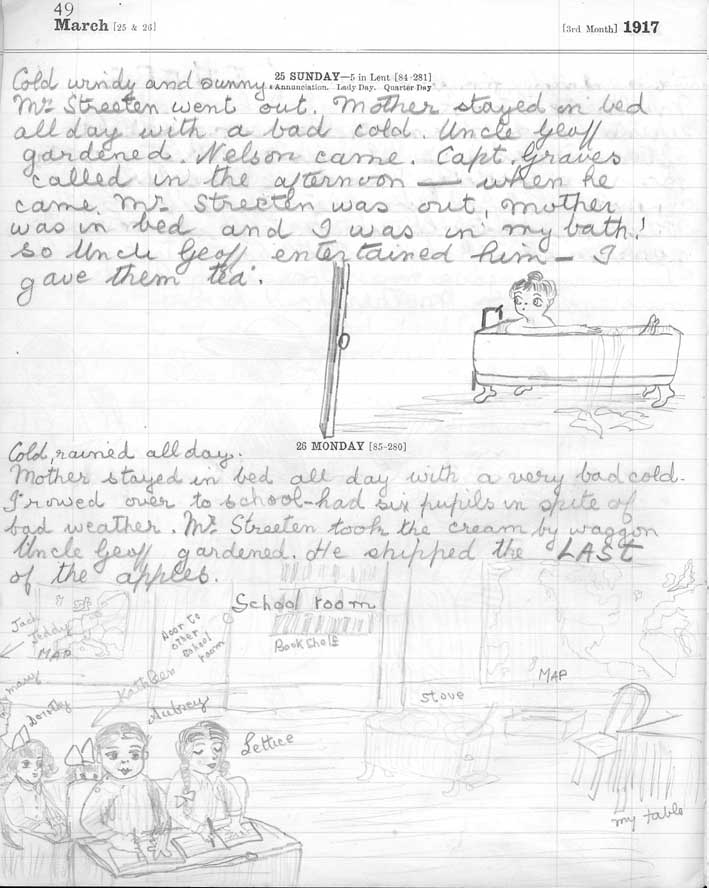 49
March [25 & 26]
[3rd Month] 1917
25 SUNDAY—5 in Lent [84-281]
Annunciation. Lady Day. Quarter Day
Cold windy and sunny
Mr Streeten went out. Mother stayed in bed
all day with a bad cold. Uncle Geoff
gardened. Nelson came. Capt. Graves
called in the afternoon — when he
came, Mr Streeten was out, mother
was in bed and I was in my bath!
so Uncle Geoff entertained him — I
gave them tea.
26 MONDAY [85-280]
Cold, rained all day.
Mother stayed in bed all day with a very bad cold.
I rowed over to school - had six pupils in spite of
bad weather. Mr Streeten took the cream by waggon
Uncle Geoff gardened. He shipped the LAST
of the apples.
School room
Jack
Teddy
MAP
Door to
other
school
room
Book Shelf
MAP
mary
Dorothy
Kathleen
Aubrey
Lettice
stove
my table